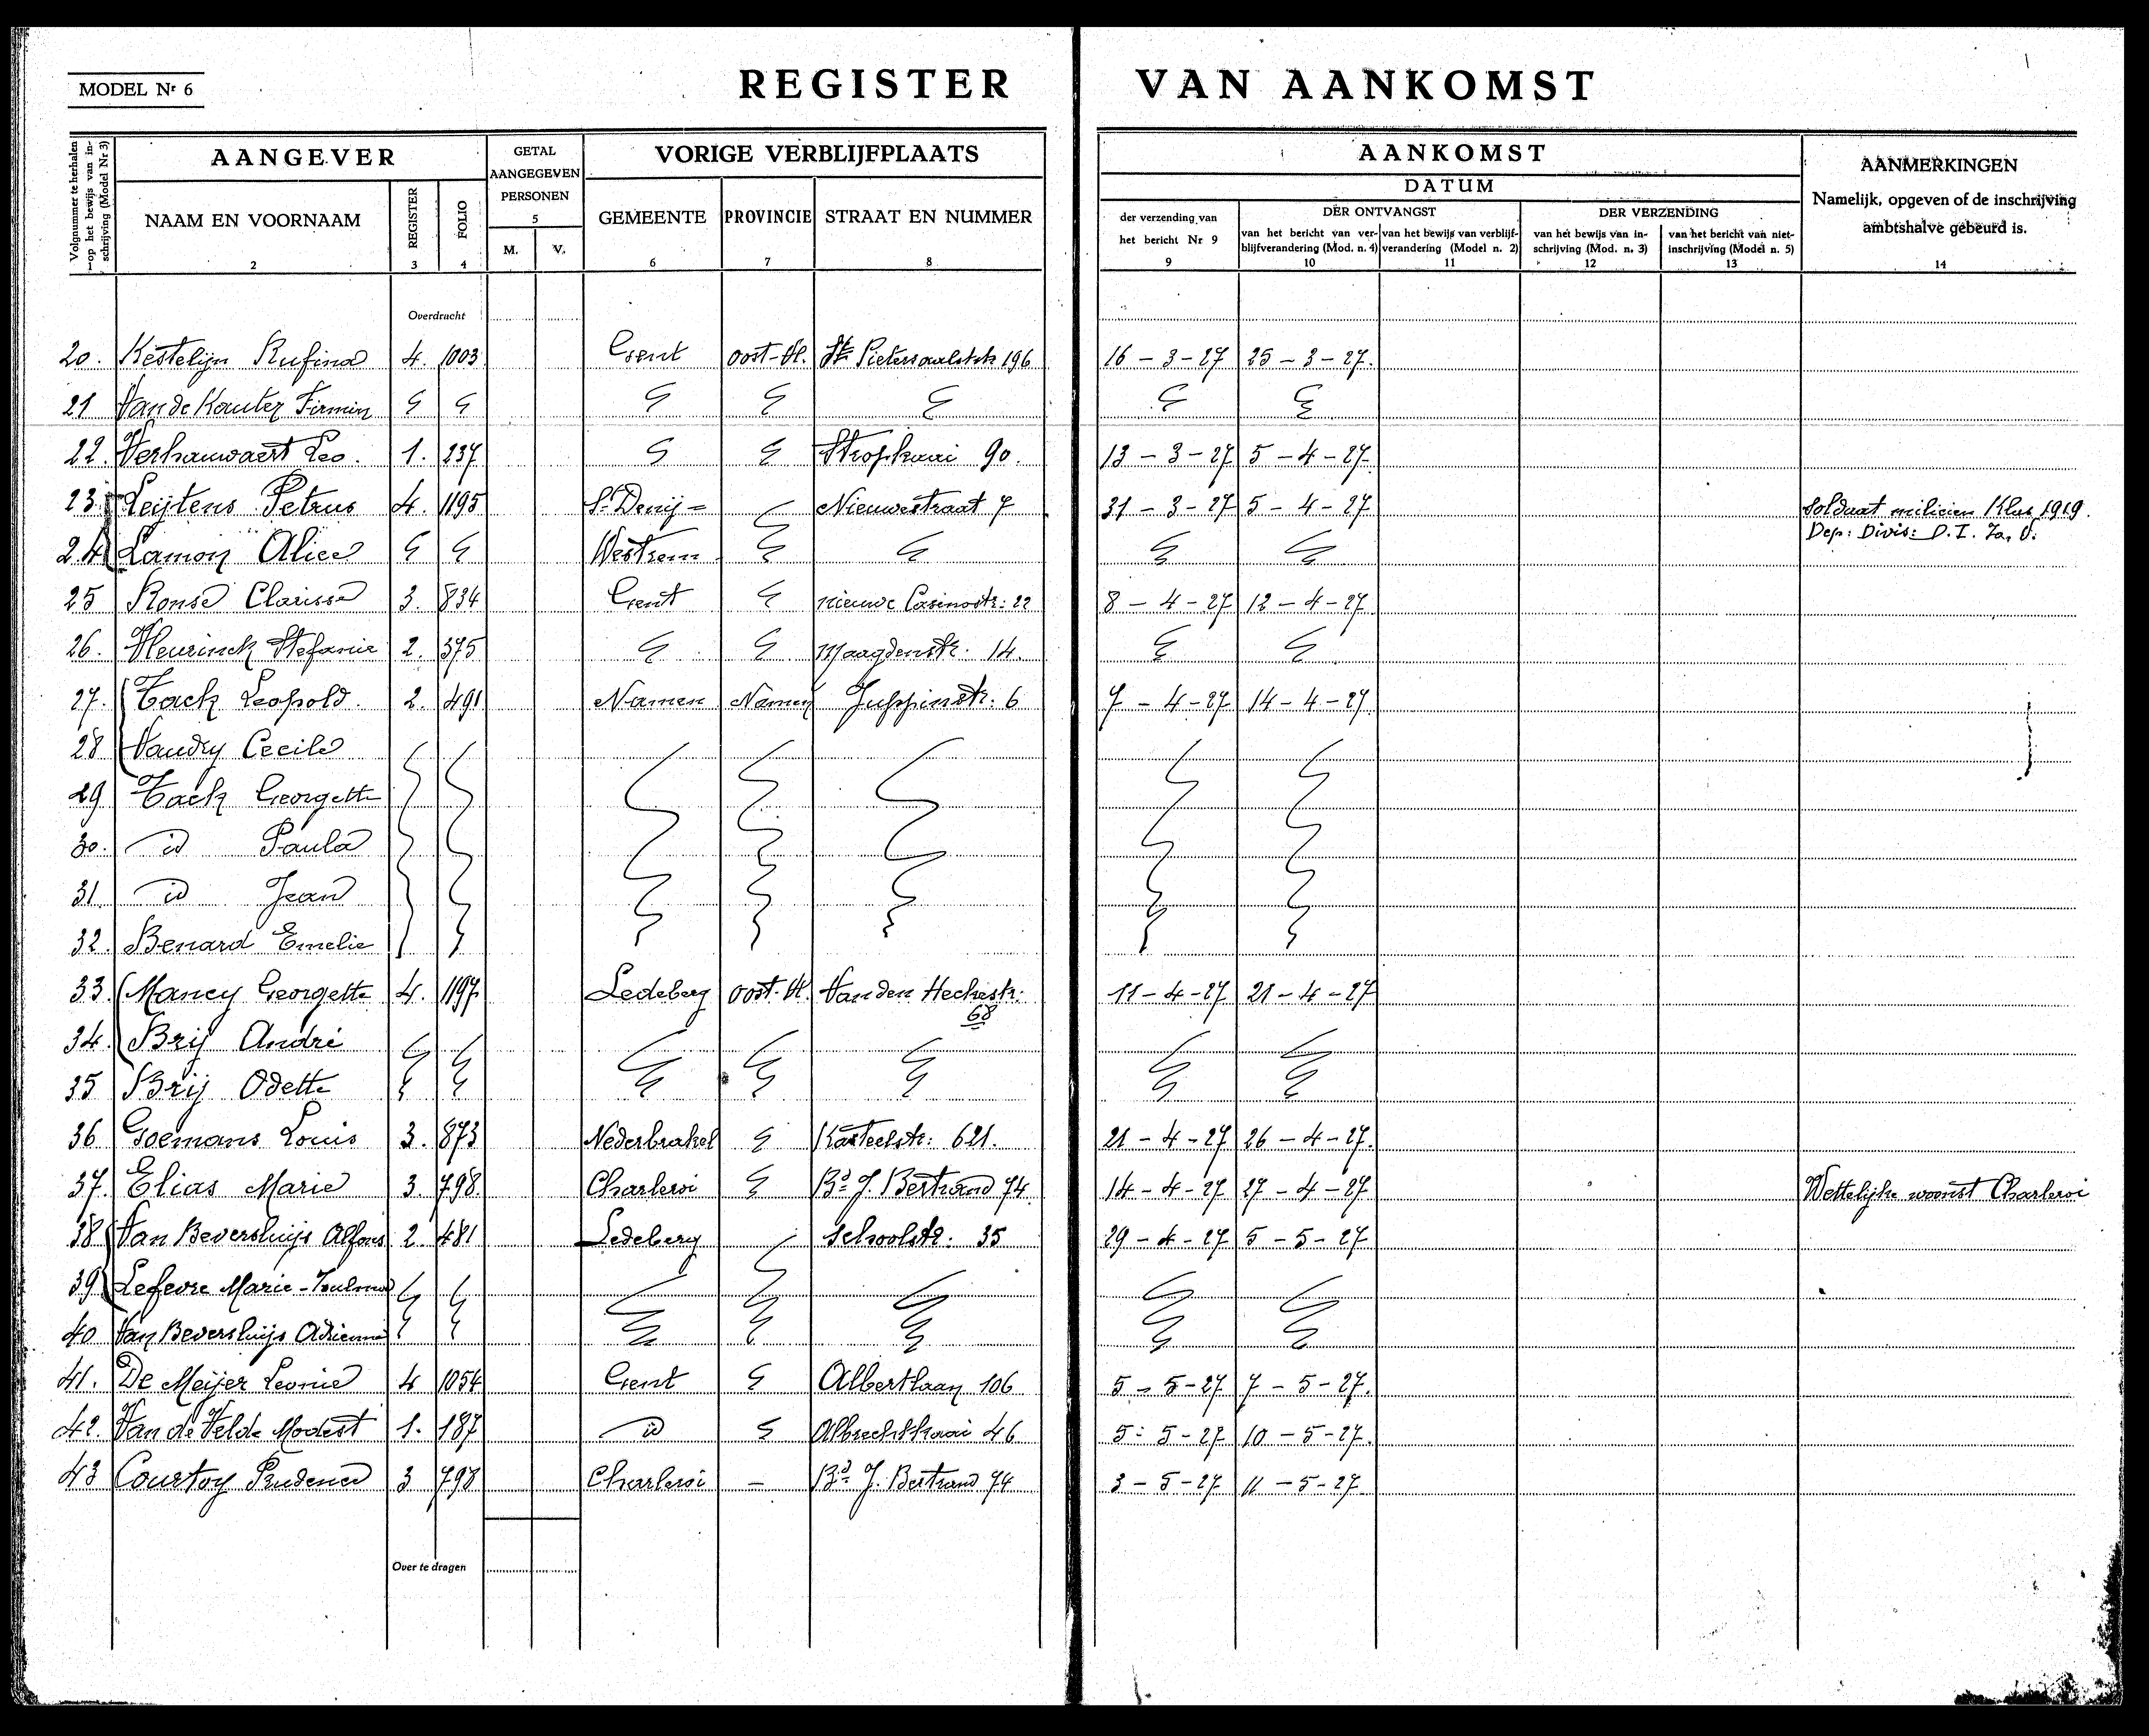 MODEL Nr 6
REGISTER VAN AANKOMST
Volgnummer te herhalen op het bewijs van inschrijving (Model Nr 3)
AANGEVER
NAAM EN VOORNAAM
2
REGISTER
3
FOLIO
4
GETAL
AANGEGEVEN
PERSONEN
5
M. V.
VORIGE VERBLIJFPLAATS
GEMEENTE
6
PROVINCIE
7
STRAAT EN NUMMER
8
AANKOMST
DATUM
der verzending van
het bericht Nr 9
9
DER ONTVANGST
van het bericht van ver-
blijfverandering (Mod. n. 4)
10
van het bewijs van verblijf-
verandering (Model n. 2)
11
DER VERZENDING
van het bewijs van in-
schrijving (Mod. n. 3)
12
van het bericht van niet-
inschrijving (Model n. 5)
13
AANMERKINGEN
Namelijk, opgeven of de inschrijving
ambtshalve gebeurd is.
14
Overdracht
20. Kestelijn Rufina 4. 1003 Gent Oost-Vl. St Pietersaalststr 196 16-3-27 25-3-27.
21 Van de Kauter Firmin
22. Verhauwaert Leo. 1. 237 Stropkaai 90. 13-3-27 5-4-27.
23. Leijtens Petrus 4. 1195 St Denij= Nieuwestraat 7 31-3-27 5-4-27 Soldaat milicien Klas 1919.
Dep: Divis: D.I.
24 Lamon Alice Westrem
25 Ronse Clarisse 3. 834 Gent nieuwe Casinostr: 22 8-4-27 12-4-27
26. Heurinck Stefanie 2. 375 Maagdenstr. 14.
27. Tack Leopold. 2. 491 Namen Namen Juppinstr: 6 7-4-27 14-4-27
28 Vaudry Cecile
29 Tack Georgette
30. id Paula
31 id Jean
32. Benard Emelie
33. Mancy Georgette 4. 1197 Ledeberg Oost-Vl. Van den Heckestr: 68 11-4-27 21-4-27
34. Brij André
35 Brij Odette
36 Goemans Louis 3. 873 Nederbrakel Kasteelstr: 621. 21-4-27 26-4-27.
37. Elias Marie 3. 798. Charleroi Bd J. Bertrand 74. 14-4-27 27-4-27 Wettelijke woonst Charleroi
38 Van Beversluijs Alfons 2. 481 Ledeberg Schoolstr. 35 29-4-27 5-5-27
39 Lefevre Marie-
40 Van Beversluijs Adrienne
41. De Meijer Leonie 4 1054 Gent Albertlaan 106 5-5-27 7-5-27.
42. Van de Velde Modest 1. 187 id Albrechtkaai 46 5-5-27 10-5-27.
43 Courtoy Prudence 3 798 Charleroi - Bd J. Bertrand 74 3-5-27 11-5-27
Over te dragen